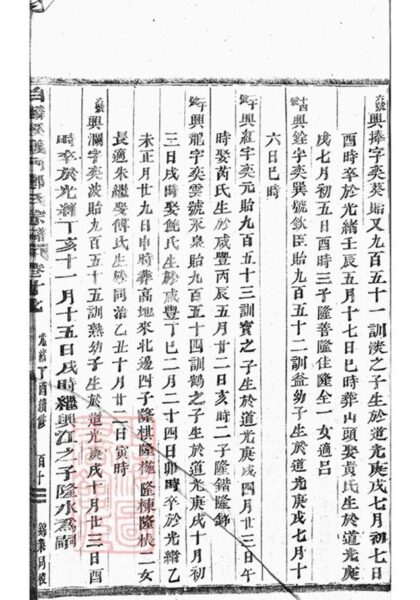 六號興捧字奕葵貽又九百五十一訓淡之子生於道光庚戌七月初七日
酉時卒於光緒壬辰五月十七日巳時葬山頭娶黃氏生於道光庚
戌七月初五日酉時三子隆善隆佳隆全一女適呂
十四號興銓字奕巽號欽臣貽九百五十二訓益幼子生於道光庚戌七月十
六日巳時
十號興紅字奕元貽九百五十三訓寶之子生於道光庚戌四月廿三日午
時娶芮氏生於咸豐丙辰五月廿二日亥時二子隆鍇隆鉓
十號興龍字奕雲號永泉貽九百五十四訓鶴之子生於道光庚戌十月初
三日戌時娶饒氏生於咸豐丁巳二月二十四日卯時卒於光緒乙
未正月廿九日申時葬高地來北邊四子隆棋隆極隆棟隆樣二女
長適朱繼娶傅氏生於同治乙丑十月廿二日寅時
六號興瀾字奕波貽九百五十五訓熟幼子生於道光庚戌十月廿三日酉
時卒於光緒丁亥十一月十五日戌時繼興江之子隆水為嗣
鄭氏宗譜 卷十九 光緒丁酉續修 百十